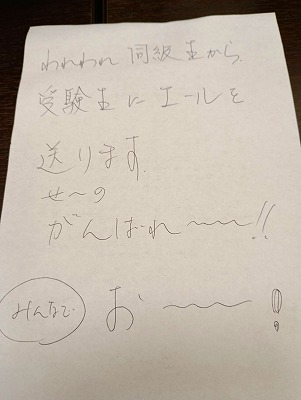 われわれ同級生から、
受験生にエールを
送ります。
せ〜の
がんばれ〜〜〜!!
みんなで お〜〜〜!